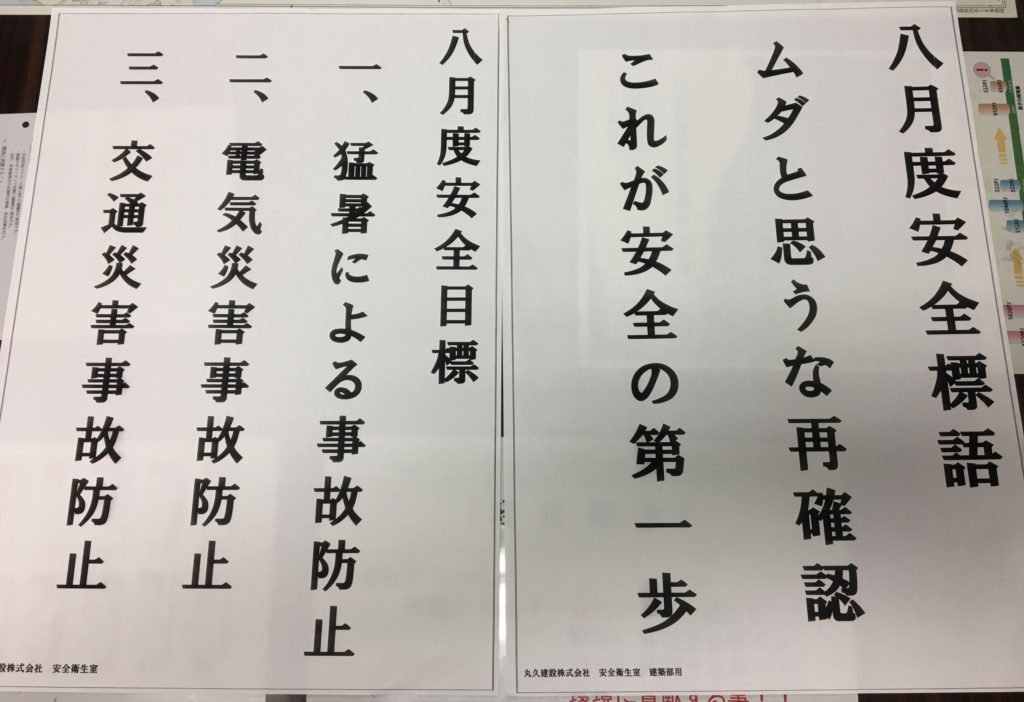 八月度安全標語
ムダと思うな再確認
これが安全の第一歩
丸久建設株式会社　安全衛生室　建築部用
八月度安全目標
一、猛暑による事故防止
二、電気災害事故防止
三、交通災害事故防止
設株式会社　安全衛生室